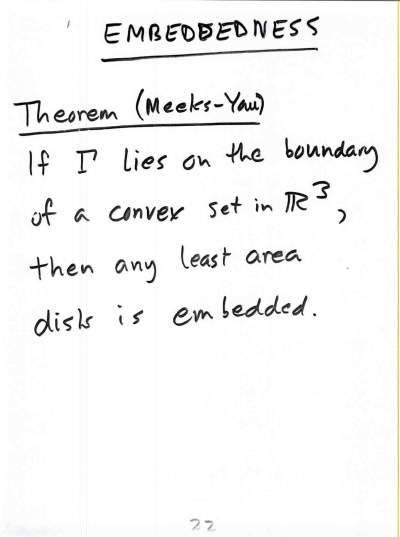 EMBEDDEDNESS
Theorem (Meeks-Yau)
If Γ lies on the boundary
of a convex set in ℝ³,
then any least area
disk is embedded.
22